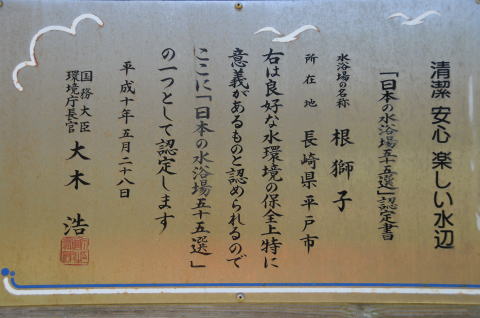 清潔 安心 楽しい水辺
「日本の水浴場五十五選」認定書
水浴場の名称 根獅子
所在地 長崎県平戸市
右は良好な水環境の保全上特に
意義があるものと認められるので
ここに「日本の水浴場五十五選」
の一つとして認定します
平成十年五月二十八日
国務大臣
環境庁長官 大木 浩